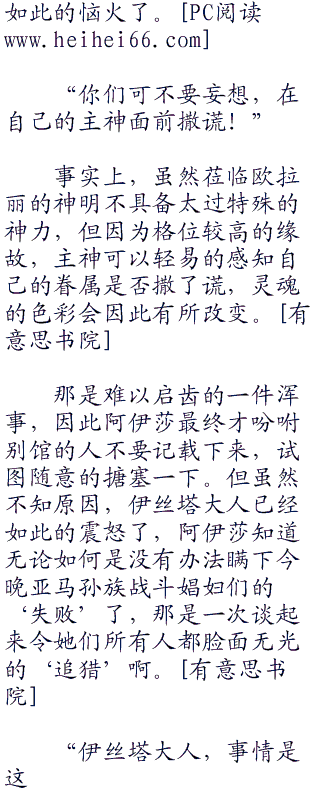 如此的恼火了。[PC阅读
www.heihei66.com]
“你们可不要妄想，在
自己的主神面前撒谎！”
事实上，虽然莅临欧拉
丽的神明不具备太过特殊的
神力，但因为格位较高的缘
故，主神可以轻易的感知自
己的眷属是否撒了谎，灵魂
的色彩会因此有所改变。[有
意思书院]
那是难以启齿的一件浑
事，因此阿伊莎最终才吩咐
别馆的人不要记载下来，试
图随意的搪塞一下。但虽然
不知原因，伊丝塔大人已经
如此的震怒了，阿伊莎知道
无论如何是没有办法瞒下今
晚亚马孙族战斗娼妇们的
‘失败’了，那是一次谈起
来令她们所有人都脸面无光
的‘追猎’啊。[有意思书
院]
“伊丝塔大人，事情是
这